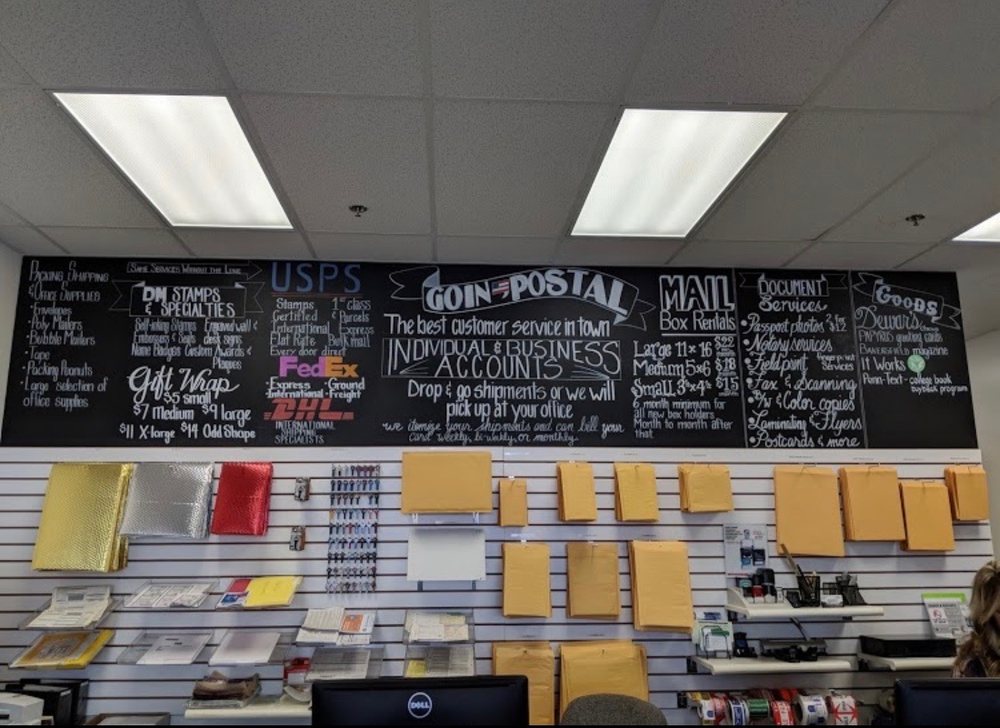 Packing Shipping
& Office Supplies
• Envelopes
• Poly Mailers
• Bubble Mailers
• Tape
• Packing Peanuts
• Large selection of
office supplies
Same Services Without the Line
DM STAMPS
& SPECIALTIES
Self-inking Stamps Engraved wall &
Embossers & Seals desk signs
Name Badges Custom Awards &
Plaques
Gift Wrap
$5 small
$7 Medium $9 large
$11 X-large $14 Odd Shape
USPS
Stamps 1st class
Certified & Parcels
International Express
Flat Rate Bulk mail
Every door direct
FedEx
• Express • Ground
• International • Freight
DHL
INTERNATIONAL
SHIPPING
SPECIALISTS
GOIN POSTAL
The best customer service in town
INDIVIDUAL & BUSINESS
ACCOUNTS
Drop & go shipments or we will
pick up at your office
we itemize your shipments and can bill your
card weekly, bi-weekly, or monthly.
MAIL
Box Rentals
Large 11×16 $22
Medium 5×6 $18
Small 3"×4" $15
6 month minimum for
all new box holders
Month to month after
that
DOCUMENT
Services
• Passport photos 2 for $12
• Notary services
• Fieldprint fingerprint Services
• Fax & Scanning
• B/W & Color copies
• Laminating • Flyers
• Postcards & more
GOODS
Dewar's
PAPYRUS greeting cards
BAKERSFIELD magazine
It Works
Penn-Text- college book
buyback program
DELL